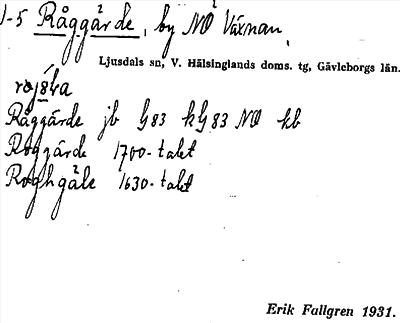 1-5 Råggärde, by NO Växnan,
Ljusdals sn, V. Hälsinglands doms. tg, Gävleborgs län.
Råggärde jb G83 kG83 NO kb
Roggärde 1700-talet
Roghgäle 1630-talet
Erik Fallgren 1931.